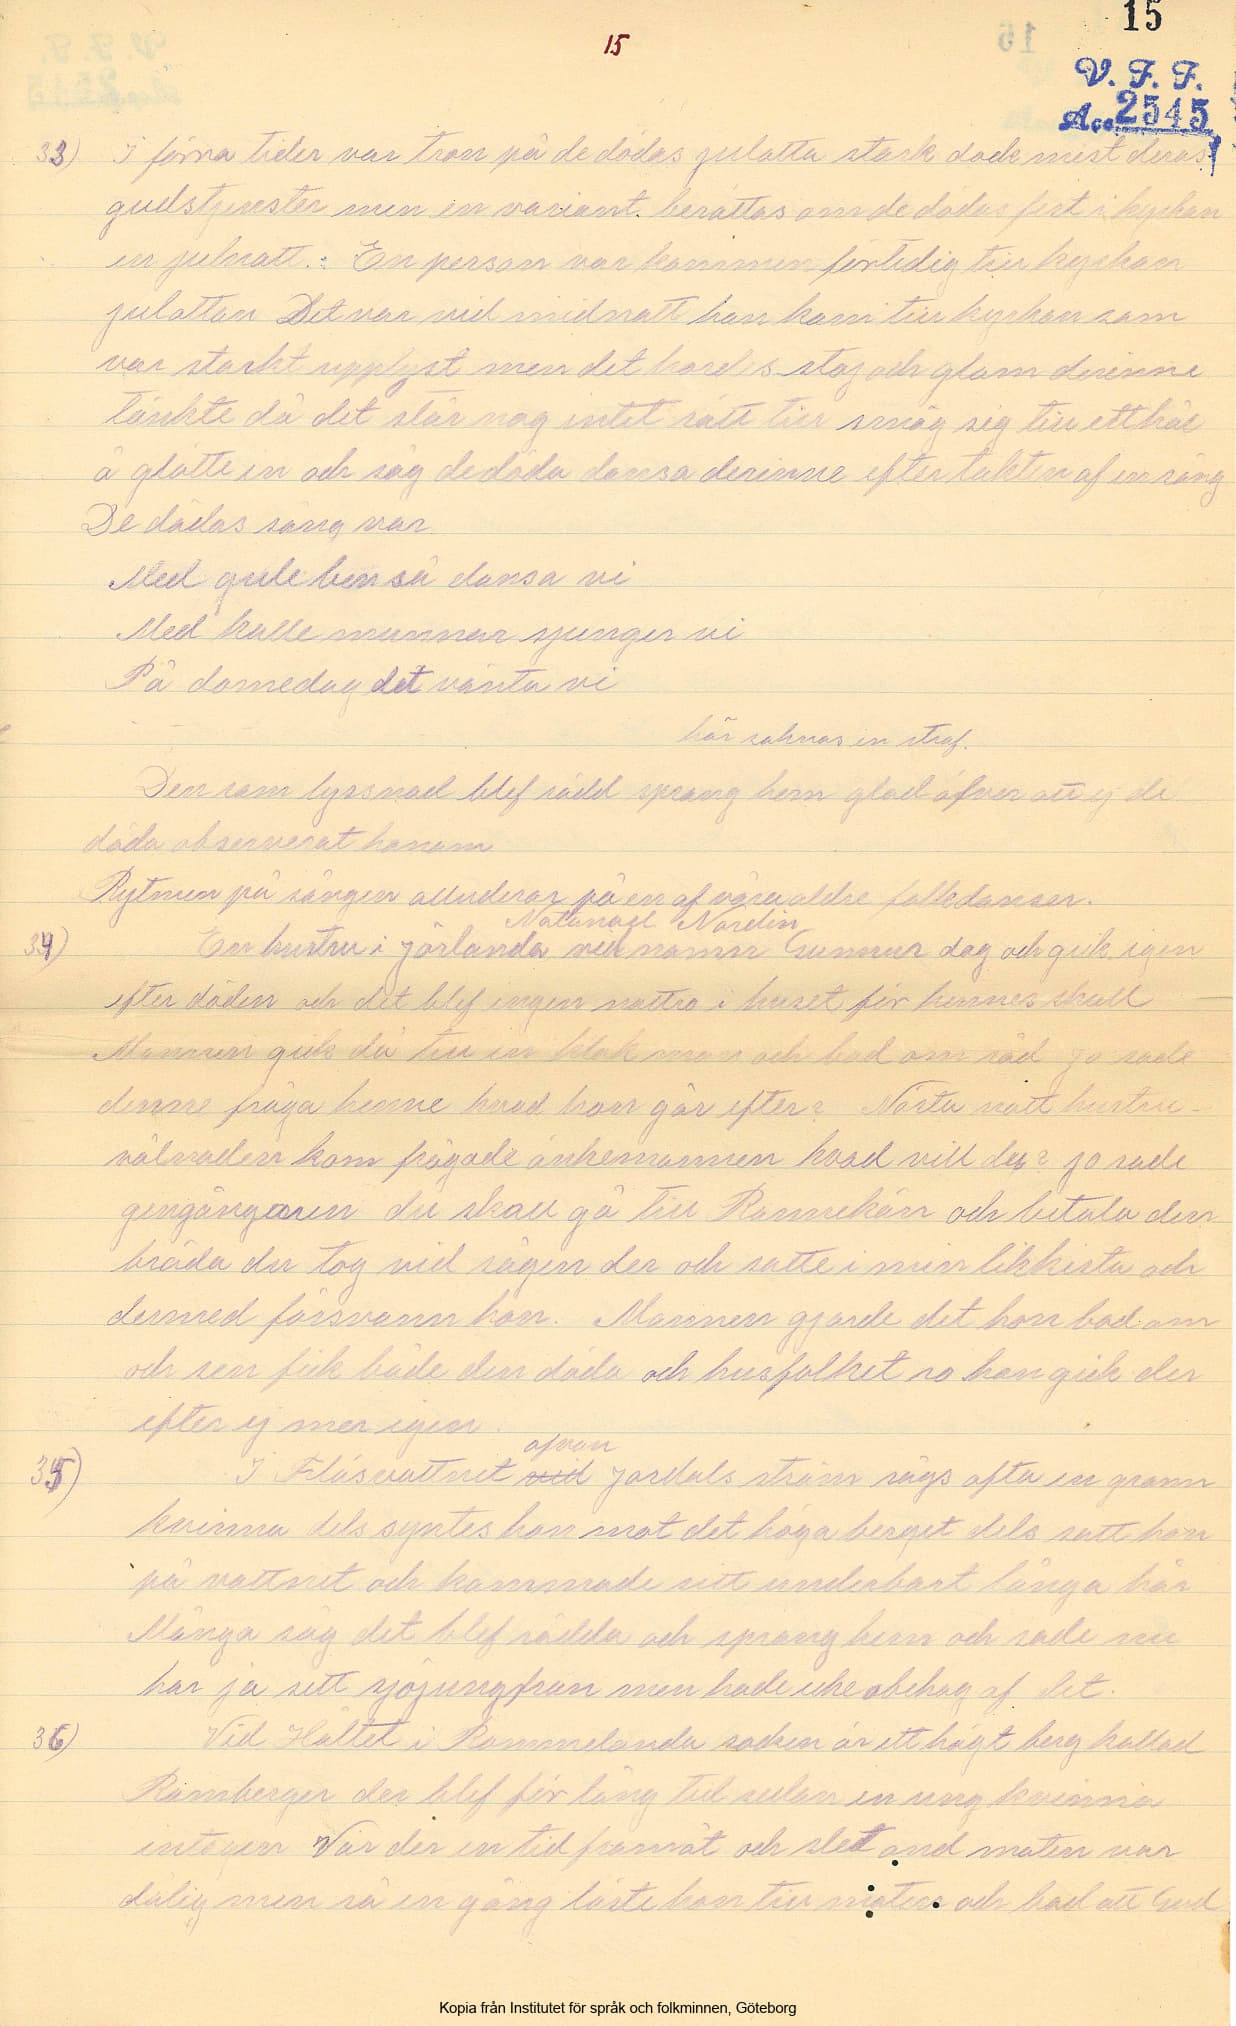 15
15
V. F. F.
Acc 2545
33) I förra tider var tron på de dödas julotta stark dock mest deras
gudstjenster men en variant berättas om de dödas fest i kyrkan
en julnatt.: En person var kommen förtidig till kyrkan
julottan Det var vid midnatt han kom till kyrkan som
var starkt upplyst men det hordes stoj och glam derinne
tänkte då det står nog intet rätt till smög sig till ett hål
å glötte in och såg de döda dansa derinne efter takten af en sång
De dödas sång var
Med gule ben så dansa vi
Med kalle munnar sjunger vi
På domedag det vänta vi
här saknas en strof.
Den som lyssnad blef rädd sprang hem glad öfver att ej de
döda observerat honom
Rytmen på sången alluderar på en af våra äldre folkdanser.
Natanael Nordin
34) En hustru i Jörlanda vid namn Gunnur dog och gick igen
efter döden och det blef ingen nattro i huset för hennes skull
Mannen gick då till en klok man och bad om råd jo sade
denne fråga henne hvad hon går efter? Nästa natt hustru-
vålnaden kom frågade änkemannen hvad vill du? jo sade
gengångaren du skall gå till Rannekärr och betala den
bräda du tog vid sågen der och satte i min likkista och
dermed försvann hon. Mannen gjorde det hon bad om
och sen fick både den döda och husfolket ro hon gick der
efter ej mer igen
ofvan
35) I Flåsvattnet vid Jordals ström sågs ofta en grann
kvinna dels syntes hon mot det höga berget dels satt hon
på vattnet och kammade sitt underbart långa hår
Många såg det blef rädda och sprang hem och sade nu
har ja sett sjöjungfrun men hade icke obehag af det.
36) Vid Hältet i Rommelanda socken är ett högt berg kallad
Ramberget der blef för lång tid sedan en ung kvinna
intagen Var der en tid framåt och slet ond maten var
dålig men så en gång läste hon till maten och bad att Gud
Kopia från Institutet för språk och folkminnen, Göteborg